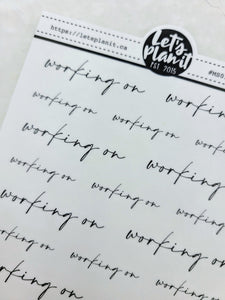 https://letsplanit.ca
Let's
plan it
EST 2015
#M80
working on
working on
working on
working on
working on
working on
working on
working on
working on
working on
working on
working on
working on
working on
working on